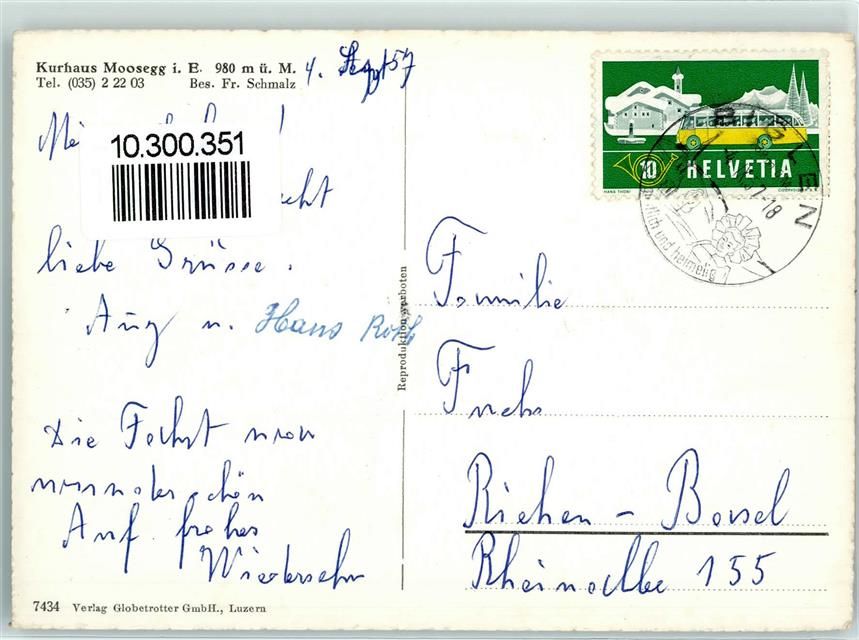 Kurhaus Moosegg i. E. 980 m ü. M.
Tel. (035) 2 22 03 Bes. Fr. Schmalz
4. Sept 57
10.300.351
liebe Grüsse.
u. Hans Roth
Die Fahrt war
wunderschön
Auf frohes
Wiedersehn
7434 Verlag Globetrotter GmbH., Luzern
Reproduktion verboten
10 HELVETIA
HANS THÖNI
BIGLEN
57-18
und heimelig
Familie
Fuchs
Riehen - Basel
155